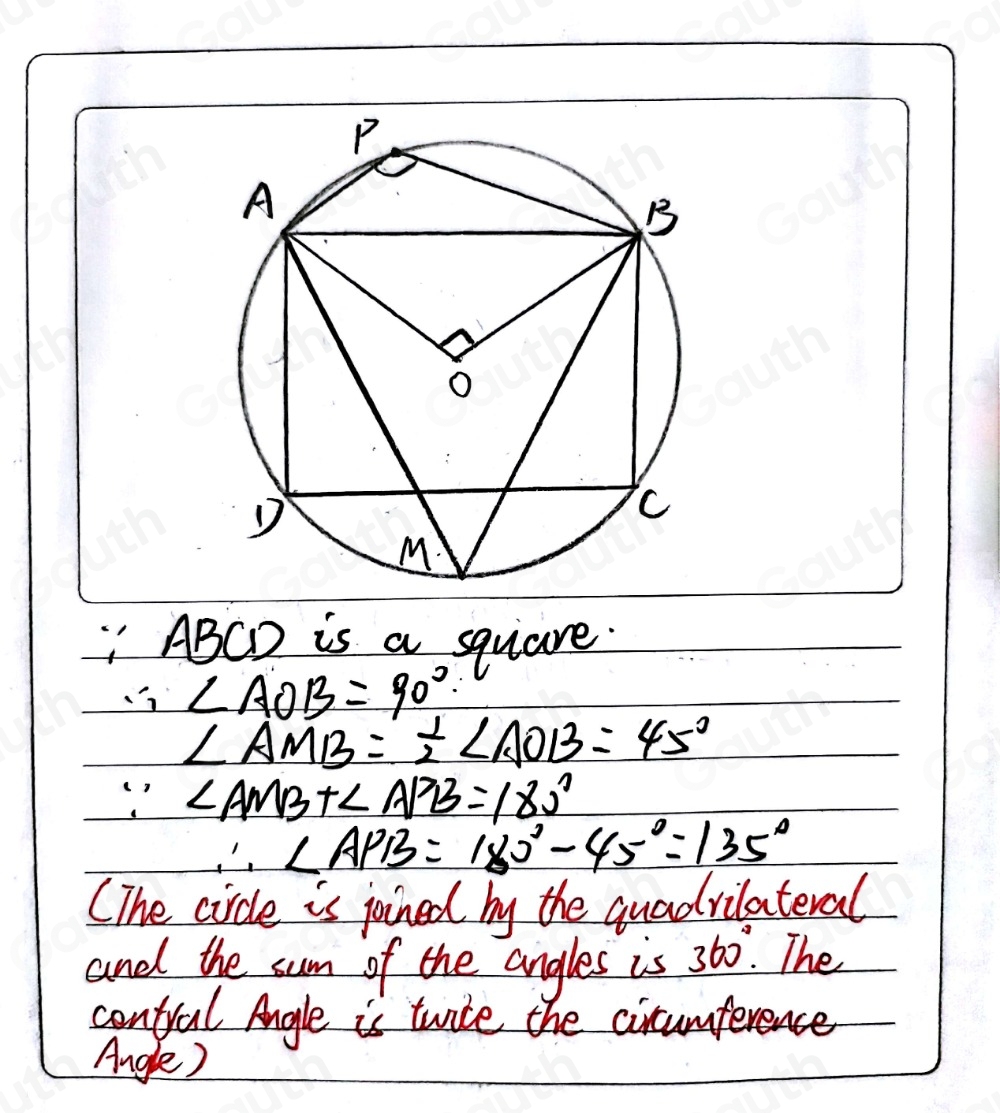 P
A
B
O
D
C
M.
∵ ABCD is a square.
∴ ∠AOB = 90°.
∠AMB = 1/2 ∠AOB = 45°
∵ ∠AMB + ∠APB = 180°
∴ ∠APB = 180° - 45° = 135°
(The circle is joined by the quadrilateral
and the sum of the angles is 360°. The
central Angle is twice the circumference
Angle)
Gauth